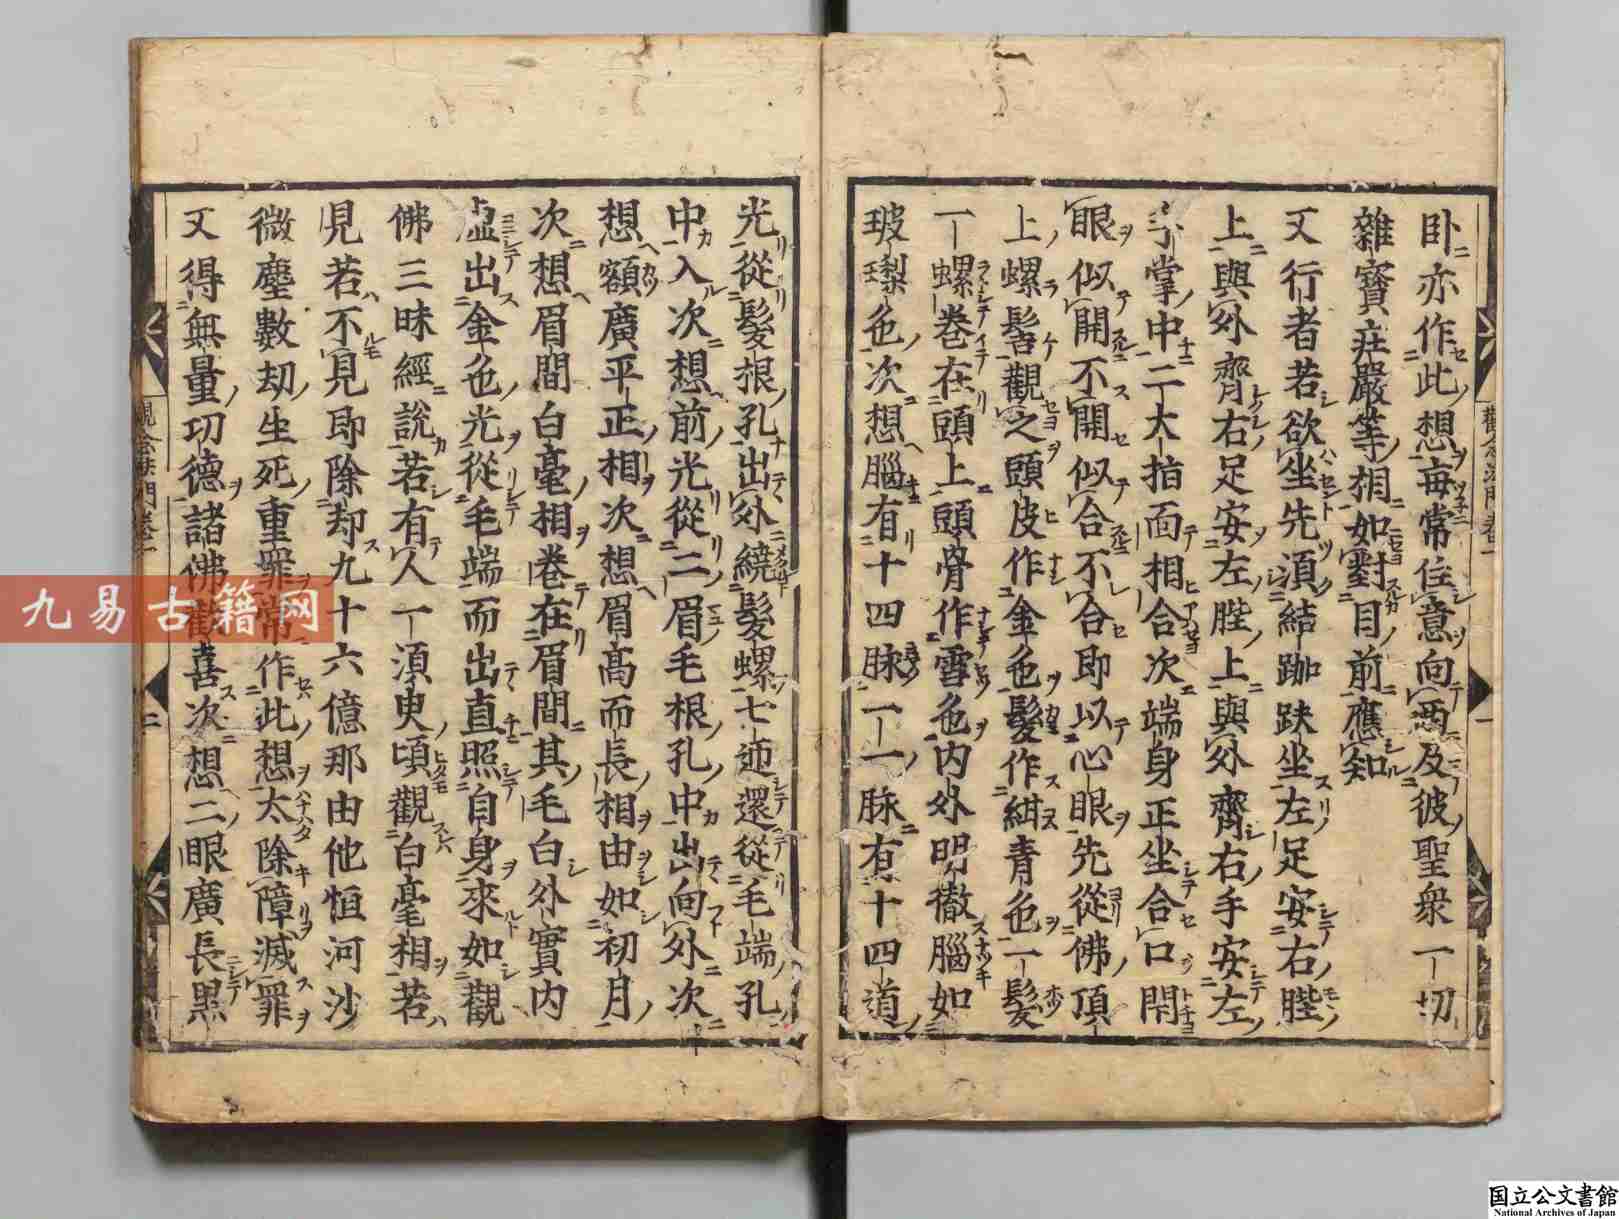 臥亦作此想每常住意向西及彼聖衆一切
雜寶莊嚴等相如對目前應知
又行者若欲坐先須結跏趺坐左足安右䏶
上與外齊右足安左䏶上與外齊右手安左
手掌中二大指面相合次端身正坐合口閇
眼似開不開似合不合即以心眼先從佛頂
上螺髻觀之頭皮作金色髮作紺青色一髮
一螺卷在頭上頭骨作雪色内外明徹腦如
玻瓈色次想腦有十四脉一一脉有十四道
光從髮根孔出外繞髮螺七迊還從毛端孔
中入次想前光從二眉毛根孔中出向外次
想額廣平正相次想眉高而長相由如初月
次想眉間白毫相卷在眉間其毛白外實内
虛出金色光從毛端而出直照自身來如觀
佛三昧經說若有人一須臾頃觀白毫相若
見若不見即除却九十六億那由他恒河沙
微塵數劫生死重罪常作此想太除障滅罪
又得無量功德諸佛歡喜次想二眼廣長黒
觀念法門卷一
一
二
九易古籍网
国立公文書館
National Archives of Japan